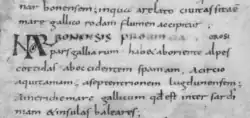 nar bonensem; inquo arelato ciuitas sita
mare gallico rodani flumen accipitur;
NARBONENSIS prouincia
pars galliarum habec aboriente alpes
cotidas aboccidentem spaniam, acircio
aquitaniam, aseptentrionem lugdunensem;
Ameridie mare gallicum quod est inter sardi
niam & insulas baleares;